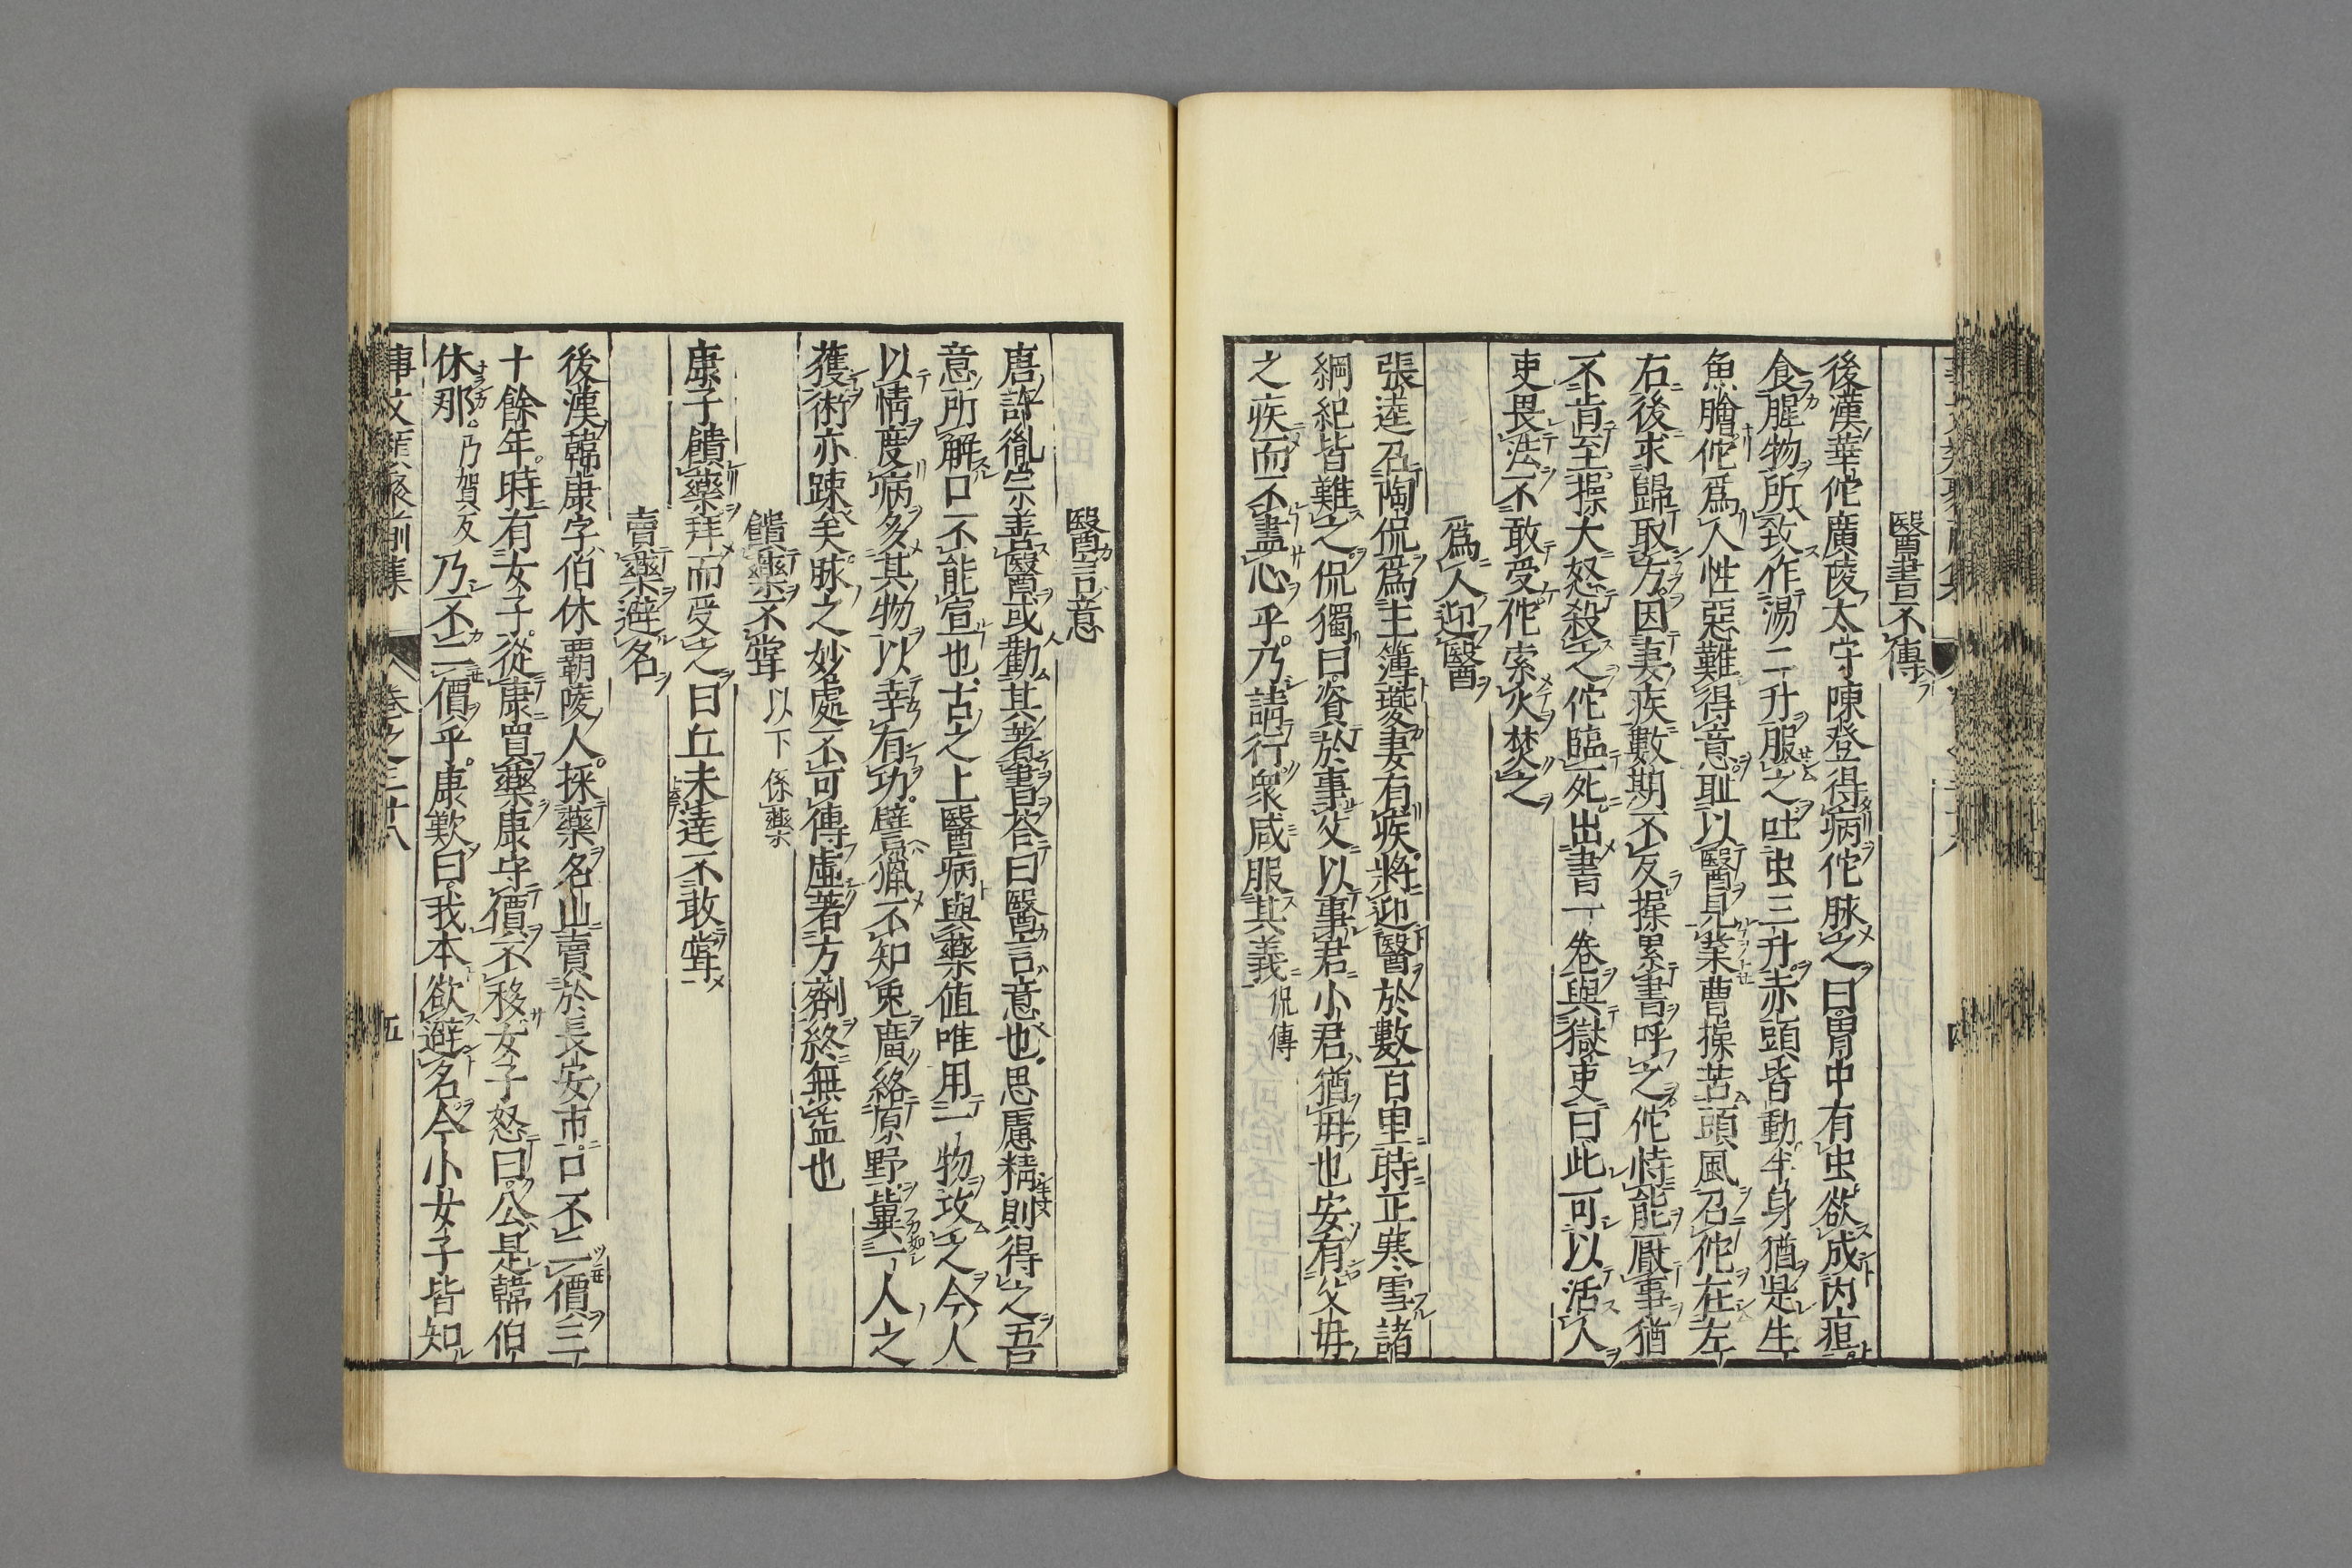 醫書不傳
後漢華佗廣陵太守陳登得病佗脉之曰胃中有虫欲成内疽
食腥物所致作湯二升服之吐虫三升赤頭皆動半身猶是生
魚膾佗爲人性惡難得意恥以醫見業曹操苦頭風召佗在左
右後求歸取方因妻疾數期不反操累書呼之佗恃能厭事猶
不肯至操大怒殺之佗臨死出書一卷與獄吏曰此可以活人
吏畏法不敢受佗索火焚之
爲人迎醫
張逵召陶侃爲主簿夔妻有疾將迎醫於數百里時正寒雪諸
綱紀皆難之侃獨曰資於事父以事君小君猶毋也安有父毋
之疾而不盡心乎乃請行衆咸服其義侃傳
醫言意
唐許胤宗善醫或勸其著書荅曰醫言意也思慮精則得之吾
意所解口不能宣也古之上醫病與藥値唯用一物攻之今人
以情度病多其物以幸有功譬獵不知兎廣絡原野兾一人之
獲術亦踈矣脉之妙處不可傳虛著方劑終無益也
饋藥不甞以下係藥
康子饋藥拜而受之曰丘未達不敢甞
賣藥避名
後漢韓康字伯休霸陵人採藥名山賣於長安市口不二價三
十餘年時有女子從康買藥康守價不移女子怒曰公是韓伯
休那乃賀反乃不二價乎康歎曰我本欲避名今小女子皆知
事文類聚前集 卷之三十八 五